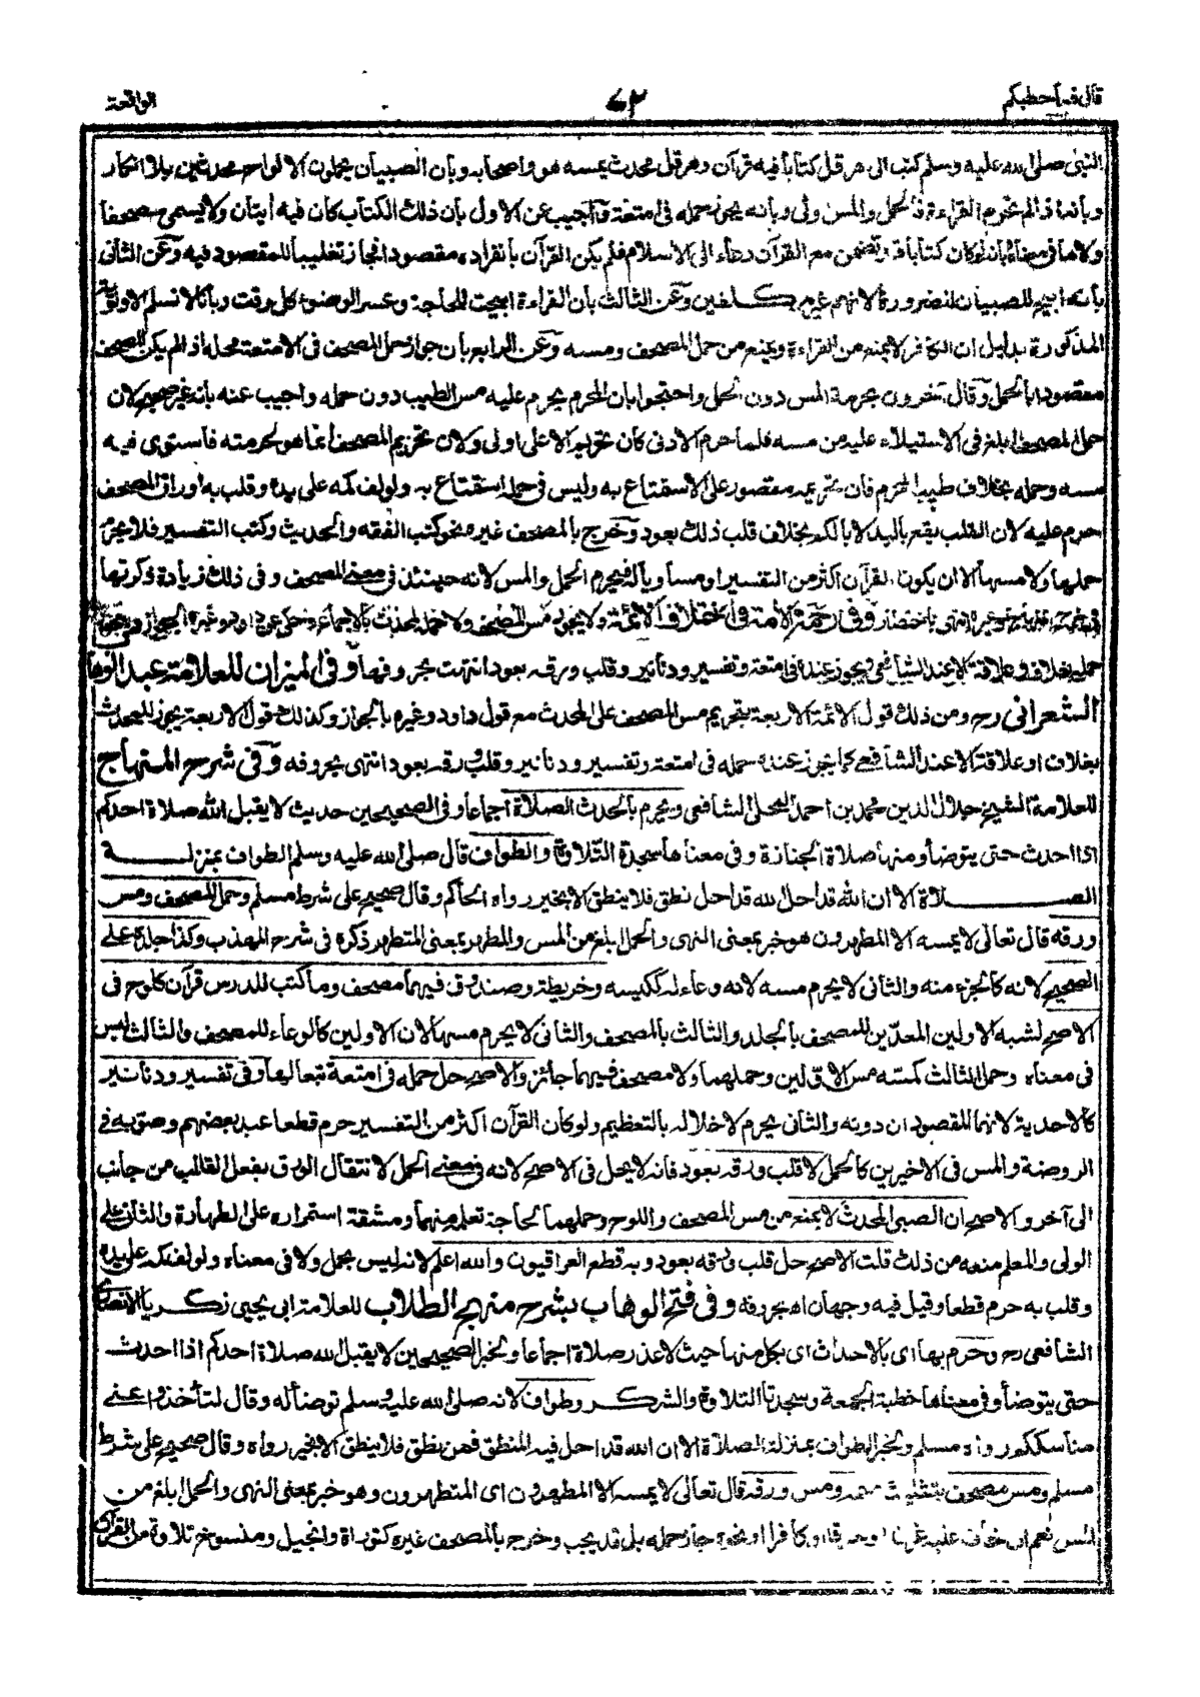 قال فما خطبكم ٤٢ الواقعة
النبي صلى الله عليه وسلم كتب الى هرقل كتابا فيه قرآن وهرقل محدث يمسه هو واصحابه وبان الصبيان يحملون الالواح محدثين بلا انكار
وبانه اذا لم تحرم القراءة فالحمل والمس اولى وبانه يجوز حمله فى امتعة وأجيب عن الاول بان ذلك الكتاب كان فيه ايتان ولا يسمى مصحفا
ولا ما فى معناه بانه لو كان كتابا قد تضمن مع القرآن دعاء الى الاسلام فلم يكن القرآن بانفراده مقصودا فجاز تغليبا للمقصود فيه وعن الثانى
بانه ابيح للصبيان لضرورة لانهم غير مكلفين وعن الثالث بان القراءة ابيحت للحاجة وعسر الوضوء كل وقت وبانا لانسلم الاولوية
المذكورة بدليل ان الكافر لا يمنع من القراءة ويمنع من حمل المصحف ومسه وعن الرابع بان جواز حمل المصحف فى الامتعة محله اذا لم يكن المصحف
مقصودا بالحمل وقال آخرون بحرمة المس دون الحمل واحتجوا بان المحرم يحرم عليه مس الطيب دون حمله واجيب عنه بانه غير صحيح لان
حمل المصحف ابلغ فى الاستيلاء عليه من مسه فلما حرم الادنى كان تحريم الاعلى اولى ولان تحريم المصحف انما هو لحرمته فاستوى فيه
مسه وحمله بخلاف طيب المحرم فان تحريمه مقصور على الاستمتاع به وليس فى حمله استمتاع به ولو لف كمه على يده وقلب به اوراق المصحف
حرم عليه لان القلب يقع باليد لا بالكم بخلاف قلب ذلك بعود وخرج بالمصحف غيره نحو كتب الفقه والحديث وكتب التفسير فلا يحرم
حملها ولا مسها الا ان يكون القرآن اكثر من التفسير او مساويا له فيحرم الحمل والمس لانه حينئذ فى معنى المصحف وفى ذلك زيادة ذكرتها
فى باختصار وفى رحمة الامة فى اختلاف الائمة ولا يجوز مس المصحف ولا حمله لمحدث بالاجماع وحكى عن داود وغيره الجواز ويجوز
حمله بغلاف وعلاقة الا عند الشافعى ويجوز عنده فى امتعة وتفسير ودنانير وقلب ورقه بعود انتهت بحروفها وفى الميزان للعلامة عبد الوهاب
الشعرانى رح ومن ذلك قول الائمة الاربعة بتحريم مس المصحف على المحدث مع قول داود وغيره بالجواز وكذلك قول الاربعة يجوز للمحدث
بغلاف او علاقة الا عند الشافعى كما يجوز عنده حمله فى امتعة وتفسير ودنانير وقلب ورقه بعود انتهى بحروفه وفى شرح المنهاج
للعلامة الشيخ جلال الدين محمد بن احمد المحلى الشافعى ويحرم بالحدث الصلاة اجماعا وفى الصحيحين حديث لا يقبل الله صلاة احدكم
اذا احدث حتى يتوضأ ومنها صلاة الجنازة وفى معناها سجدة التلاوة والطواف قال صلى الله عليه وسلم الطواف بمنزلة
الصلاة الا ان الله قد احل لله قد احل نطق فلا ينطق الا بخير رواه الحاكم وقال صحيح على شرط مسلم وحمل المصحف ومس
ورقه قال تعالى لا يمسه الا المطهرون هو خبر بمعنى النهى والحمل ابلغ من المس والمطهر بمعنى المتطهر ذكره فى شرح المهذب وكذا جلده على
الصحيح لانه كالجزء منه والثانى لا يحرم مسه لانه وعاء له ككيسه وخريطة وصندوق فيهما مصحف وما كتب للدرس قرآن كلوح فى
الاصح لشبه الاولين المعدّين للمصحف بالجلد والثالث بالمصحف والثانى لا يحرم مسها لان الاولين كالوعاء للمصحف والثالث ليس
فى معناه وحمل الثالث كمسه مس الاولين وحملهما ولا مصحف فيهما جائز والاصح حل حمله فى امتعة تبعا لها وفى تفسير ودنانير
كالاحدية لانهما المقصودان دونه والثانى يحرم لاخلاله بالتعظيم ولو كان القرآن اكثر من التفسير حرم قطعا عند بعضهم وصوّبه فى
الروضة والمس فى الاخيرين كالحمل لا قلب ورقه بعود فانه لا يحل فى الاصح لانه فى معنى الحمل لانتقال الورق بفعل القالب من جانب
الى آخر والاصح ان الصبى المحدث لا يمنع من مس المصحف واللوح وحملهما لحاجة تعلمه منهما ومشقة استمراره على الطهارة والثانى على
الولى والمعلم منعه من ذلك قلت الاصح حل قلب ورقه بعود وبه قطع العراقيون والله اعلم لانه ليس بحمل ولا فى معناه ولو لف كمه على يده
وقلب به حرم قطعا وقيل فيه وجهان اه بحروفه وفى فتح الوهاب بشرح منهج الطلاب للعلامة ابى يحيى زكريا الانصارى
الشافعى رح وحرم بها اى بالاحداث اى بكل منها حيث لا عذر صلاة اجماعا ولخبر الصحيحين لا يقبل الله صلاة احدكم اذا احدث
حتى يتوضأ وفى معناها خطبة الجمعة وسجدتا التلاوة والشكر وطواف لانه صلى الله عليه وسلم توضأ له وقال لتأخذوا عنى
مناسككم رواه مسلم ولخبر الطواف بمنزلة الصلاة الا ان الله قد احل فيه المنطق فمن نطق فلا ينطق الا بخير رواه وقال صحيح على شرط
مسلم ومس مصحف بتثليث ميمه ومس ورقه قال تعالى لا يمسه الا المطهرون اى المتطهرون وهو خبر بمعنى النهى والحمل ابلغ من
المس نعم ان خاف عليه غرقا او حرقا او كافرا او نحوه جاز حمله بل قد يجب وخرج بالمصحف غيره كتوراة وانجيل ومنسوخ تلاوة من القرآن